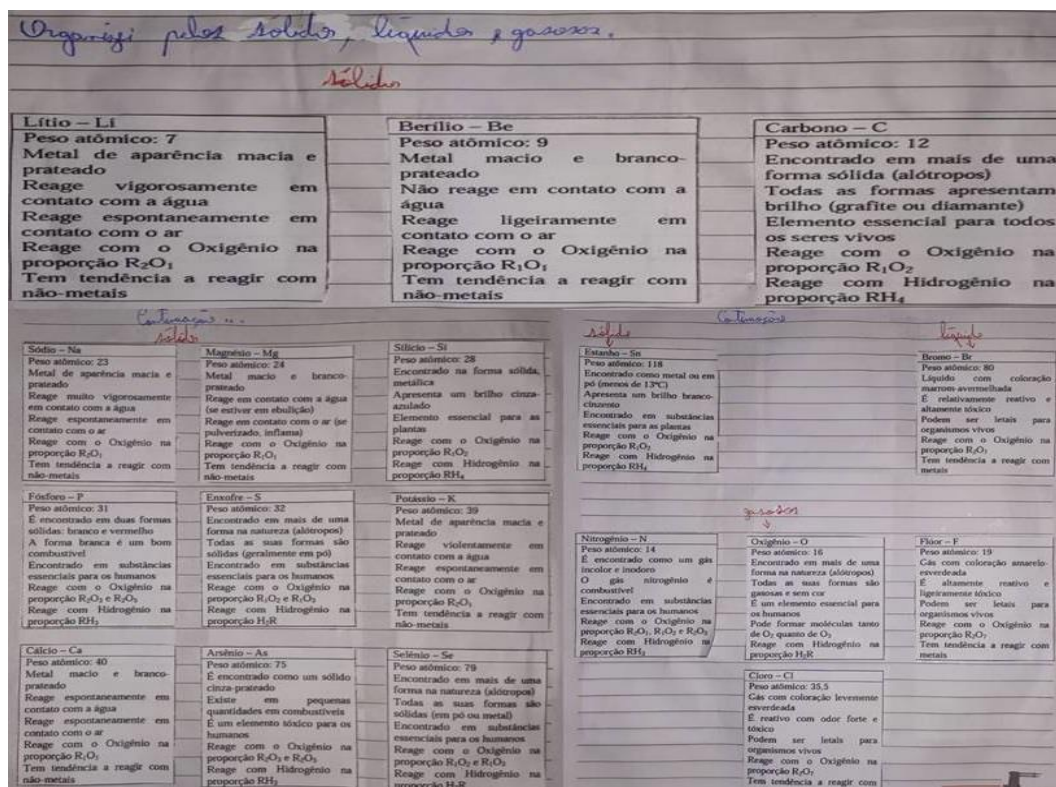 Organizei pelos sólidos, líquidos e gasosos.
sólidos
Lítio – Li
Peso atômico: 7
Metal de aparência macia e
prateado
Reage vigorosamente em
contato com a água
Reage espontaneamente em
contato com o ar
Reage com o Oxigênio na
proporção R₂O₁
Tem tendência a reagir com
não-metais
Berílio – Be
Peso atômico: 9
Metal macio e branco-
prateado
Não reage em contato com a
água
Reage ligeiramente em
contato com o ar
Reage com o Oxigênio na
proporção R₁O₁
Tem tendência a reagir com
não-metais
Carbono – C
Peso atômico: 12
Encontrado em mais de uma
forma sólida (alótropos)
Todas as formas apresentam
brilho (grafite ou diamante)
Elemento essencial para todos
os seres vivos
Reage com o Oxigênio na
proporção R₁O₂
Reage com Hidrogênio na
proporção RH₄
sólidos
Sódio – Na
Peso atômico: 23
Metal de aparência macia e
prateado
Reage muito vigorosamente
em contato com a água
Reage espontaneamente em
contato com o ar
Reage com o Oxigênio na
proporção R₂O₁
Tem tendência a reagir com
não-metais
Magnésio – Mg
Peso atômico: 24
Metal macio e branco-
prateado
Reage em contato com a água
(se estiver em ebulição)
Reage em contato com o ar (se
pulverizado, inflama)
Reage com o Oxigênio na
proporção R₁O₁
Tem tendência a reagir com
não-metais
Silício – Si
Peso atômico: 28
Encontrado na forma sólida,
metálica
Apresenta um brilho cinza-
azulado
Elemento essencial para as
plantas
Reage com o Oxigênio na
proporção R₁O₂
Reage com Hidrogênio na
proporção RH₄
Fósforo – P
Peso atômico: 31
É encontrado em duas formas
sólidas: branco e vermelho
A forma branca é um bom
combustível
Encontrado em substâncias
essenciais para os humanos
Reage com o Oxigênio na
proporção R₂O₃ e R₂O₅
Reage com Hidrogênio na
proporção RH₃
Enxofre – S
Peso atômico: 32
Encontrado em mais de uma
forma na natureza (alótropos)
Todas as suas formas são
sólidas (geralmente em pó)
Encontrado em substâncias
essenciais para os humanos
Reage com o Oxigênio na
proporção R₁O₂ e R₁O₃
Reage com Hidrogênio na
proporção H₂R
Potássio – K
Peso atômico: 39
Metal de aparência macia e
prateado
Reage violentamente em
contato com a água
Reage espontaneamente em
contato com o ar
Reage com o Oxigênio na
proporção R₂O₁
Tem tendência a reagir com
não-metais
Cálcio – Ca
Peso atômico: 40
Metal macio e branco-
prateado
Reage espontaneamente em
contato com a água
Reage espontaneamente em
contato com o ar
Reage com o Oxigênio na
proporção R₁O₁
Tem tendência a reagir com
não-metais
Arsênio – As
Peso atômico: 75
É encontrado como um sólido
cinza-prateado
Existe em pequenas
quantidades em combustíveis
É um elemento tóxico para os
humanos
Reage com o Oxigênio na
proporção R₂O₃ e R₂O₅
Reage com Hidrogênio na
proporção RH₃
Selênio – Se
Peso atômico: 79
Encontrado em mais de uma
forma na natureza (alótropos)
Todas as suas formas são
sólidas (em pó ou metal)
Encontrado em substâncias
essenciais para os humanos
Reage com o Oxigênio na
proporção R₁O₂ e R₁O₃
Reage com Hidrogênio na
proporção H₂R
sólido
Estanho – Sn
Peso atômico: 118
Encontrado como metal ou em
pó (menos de 13ºC)
Apresenta um brilho branco-
cinzento
Encontrado em substâncias
essenciais para as plantas
Reage com o Oxigênio na
proporção R₁O₂
Reage com Hidrogênio na
proporção RH₄
líquido
Bromo – Br
Peso atômico: 80
Líquido com coloração
marrom-avermelhada
É relativamente reativo e
altamente tóxico
Podem ser letais para
organismos vivos
Reage com o Oxigênio na
proporção R₂O₇
Tem tendência a reagir com
metais
gasosos
Nitrogênio – N
Peso atômico: 14
É encontrado como um gás
incolor e inodoro
O gás nitrogênio é
combustível
Encontrado em substâncias
essenciais para os humanos
Reage com o Oxigênio na
proporção R₂O₁, R₁O₂ e R₂O₅
Reage com Hidrogênio na
proporção RH₃
Oxigênio – O
Peso atômico: 16
Encontrado em mais de uma
forma na natureza (alótropos)
Todas as suas formas são
gasosas e sem cor
É um elemento essencial para
os humanos
Pode formar moléculas tanto
de O₂ quanto de O₃
Reage com Hidrogênio na
proporção H₂R
Flúor – F
Peso atômico: 19
Gás com coloração amarelo-
esverdeada
É altamente reativo e
ligeiramente tóxico
Podem ser letais para
organismos vivos
Reage com o Oxigênio na
proporção R₂O₇
Tem tendência a reagir com
metais
Cloro – Cl
Peso atômico: 35,5
Gás com coloração levemente
esverdeada
É reativo com odor forte e
tóxico
Podem ser letais para
organismos vivos
Reage com o Oxigênio na
proporção R₂O₇
Tem tendência a reagir com